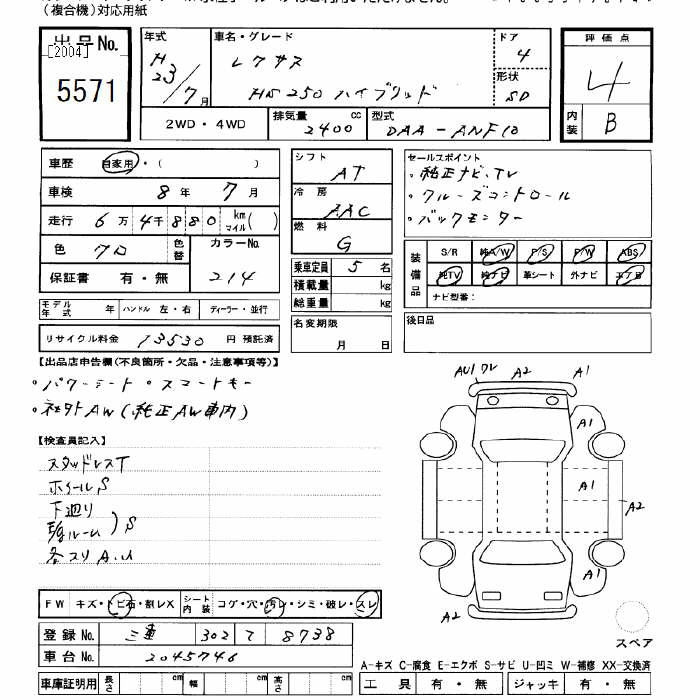 （複合機）対応用紙
出品No.
[2004]
5571
年式 H23/7月
車名・グレード レクサス HS250 ハイブリッド
ドア 4
形状 SD
評価点 4
内装 B
2WD・4WD
排気量 2400 cc
型式 DAA-ANF10
車歴 自家用・( )
車検 8年 7月
走行 6万4千880 km マイル( )
色 クロ
色替
カラーNo. 214
保証書 有・無
モデル年式 年 ハンドル 左・右 ディーラー・並行
リサイクル料金 13530 円 預託済
シフト AT
冷房 AAC
燃料 G
乗車定員 5 名
積載量 kg
総重量 kg
名変期限 月 日
セールスポイント
・純正ナビ、TV
・クルーズコントロール
・バックモニター
装備品
S/R 純A/W P/S P/W ABS
純TV 純ナビ 革シート 外ナビ エアB
ナビ型番：
後日品
【出品店申告欄(不良箇所・欠品・注意事項等)】
・パワーシート ・スマートキー
・社外AW(純正AW車内)
【検査員記入】
スタッドレスT
ホイールS
下廻り
ルーム)S
各スリA.U
AU1 A2 A1
A1
A1
A2
A1
A2
スペア
FW キズ・トビ石・割レX シート内装 コゲ・穴・汚レ・シミ・破レ・スレ
登録No. 三重 302 て 8738
車台No. 2045746
車庫証明用 長さ cm 幅 cm 高さ cm
A-キズ C-腐食 E-エクボ S-サビ U-凹ミ W-補修 XX-交換済
工具 有・無 ジャッキ 有・無